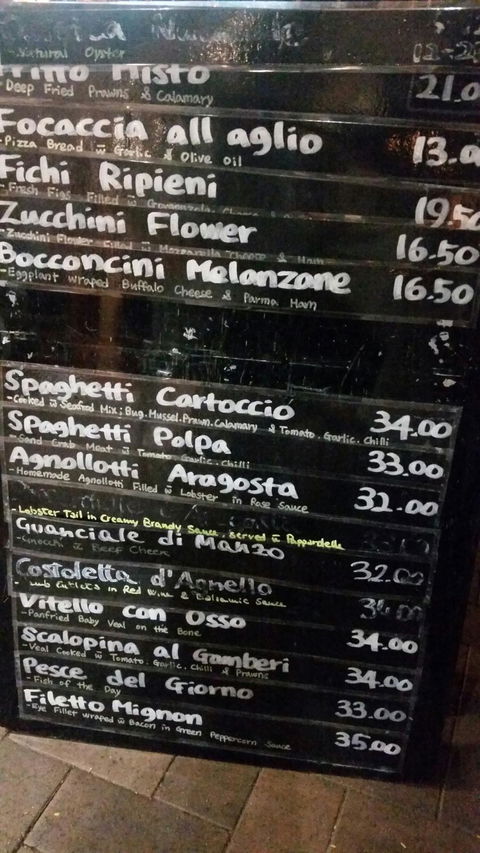 -Natural Oyster
Fritto Misto
-Deep Fried Prawns & Calamary 21.0
Focaccia all aglio 13.0
-Pizza Bread w Garlic & Olive Oil
Fichi Ripieni
-Fresh Figs Filled w 19.50
Zucchini Flower
-Zucchini Flower Filled w Mozzarella Cheese & Ham 16.50
Bocconcini Melanzane 16.50
-Eggplant wraped Buffalo Cheese & Parma Ham
Spaghetti Cartoccio 34.00
-Cooked w Seafood Mix; Bug. Mussel. Prawn. Calamary & Tomato. Garlic. Chilli
Spaghetti Polpa 33.00
-Sand Crab Meat w Tomato Garlic. Chilli
Agnollotti Aragosta 32.00
-Homemade Agnollotti Filled w Lobster in Rose Sauce
-Lobster Tail in Creamy Brandy Sauce, served w Pappardelle
Guanciale di Manzo
-Gnocchi w Beef Cheek 32.00
Costoletta d'Agnello
-Lamb Cutlets in Red Wine & Balsamic Sauce 36.00
Vitello con Osso
-Panfried Baby Veal on the Bone 34.00
Scalopina al Gamberi
-Veal Cooked w Tomato. Garlic. Chilli & Prawns 34.00
Pesce del Giorno
-Fish of the Day 33.00
Filetto Mignon
-Eye Fillet wraped w Bacon in Green Peppercorn Sauce 35.00